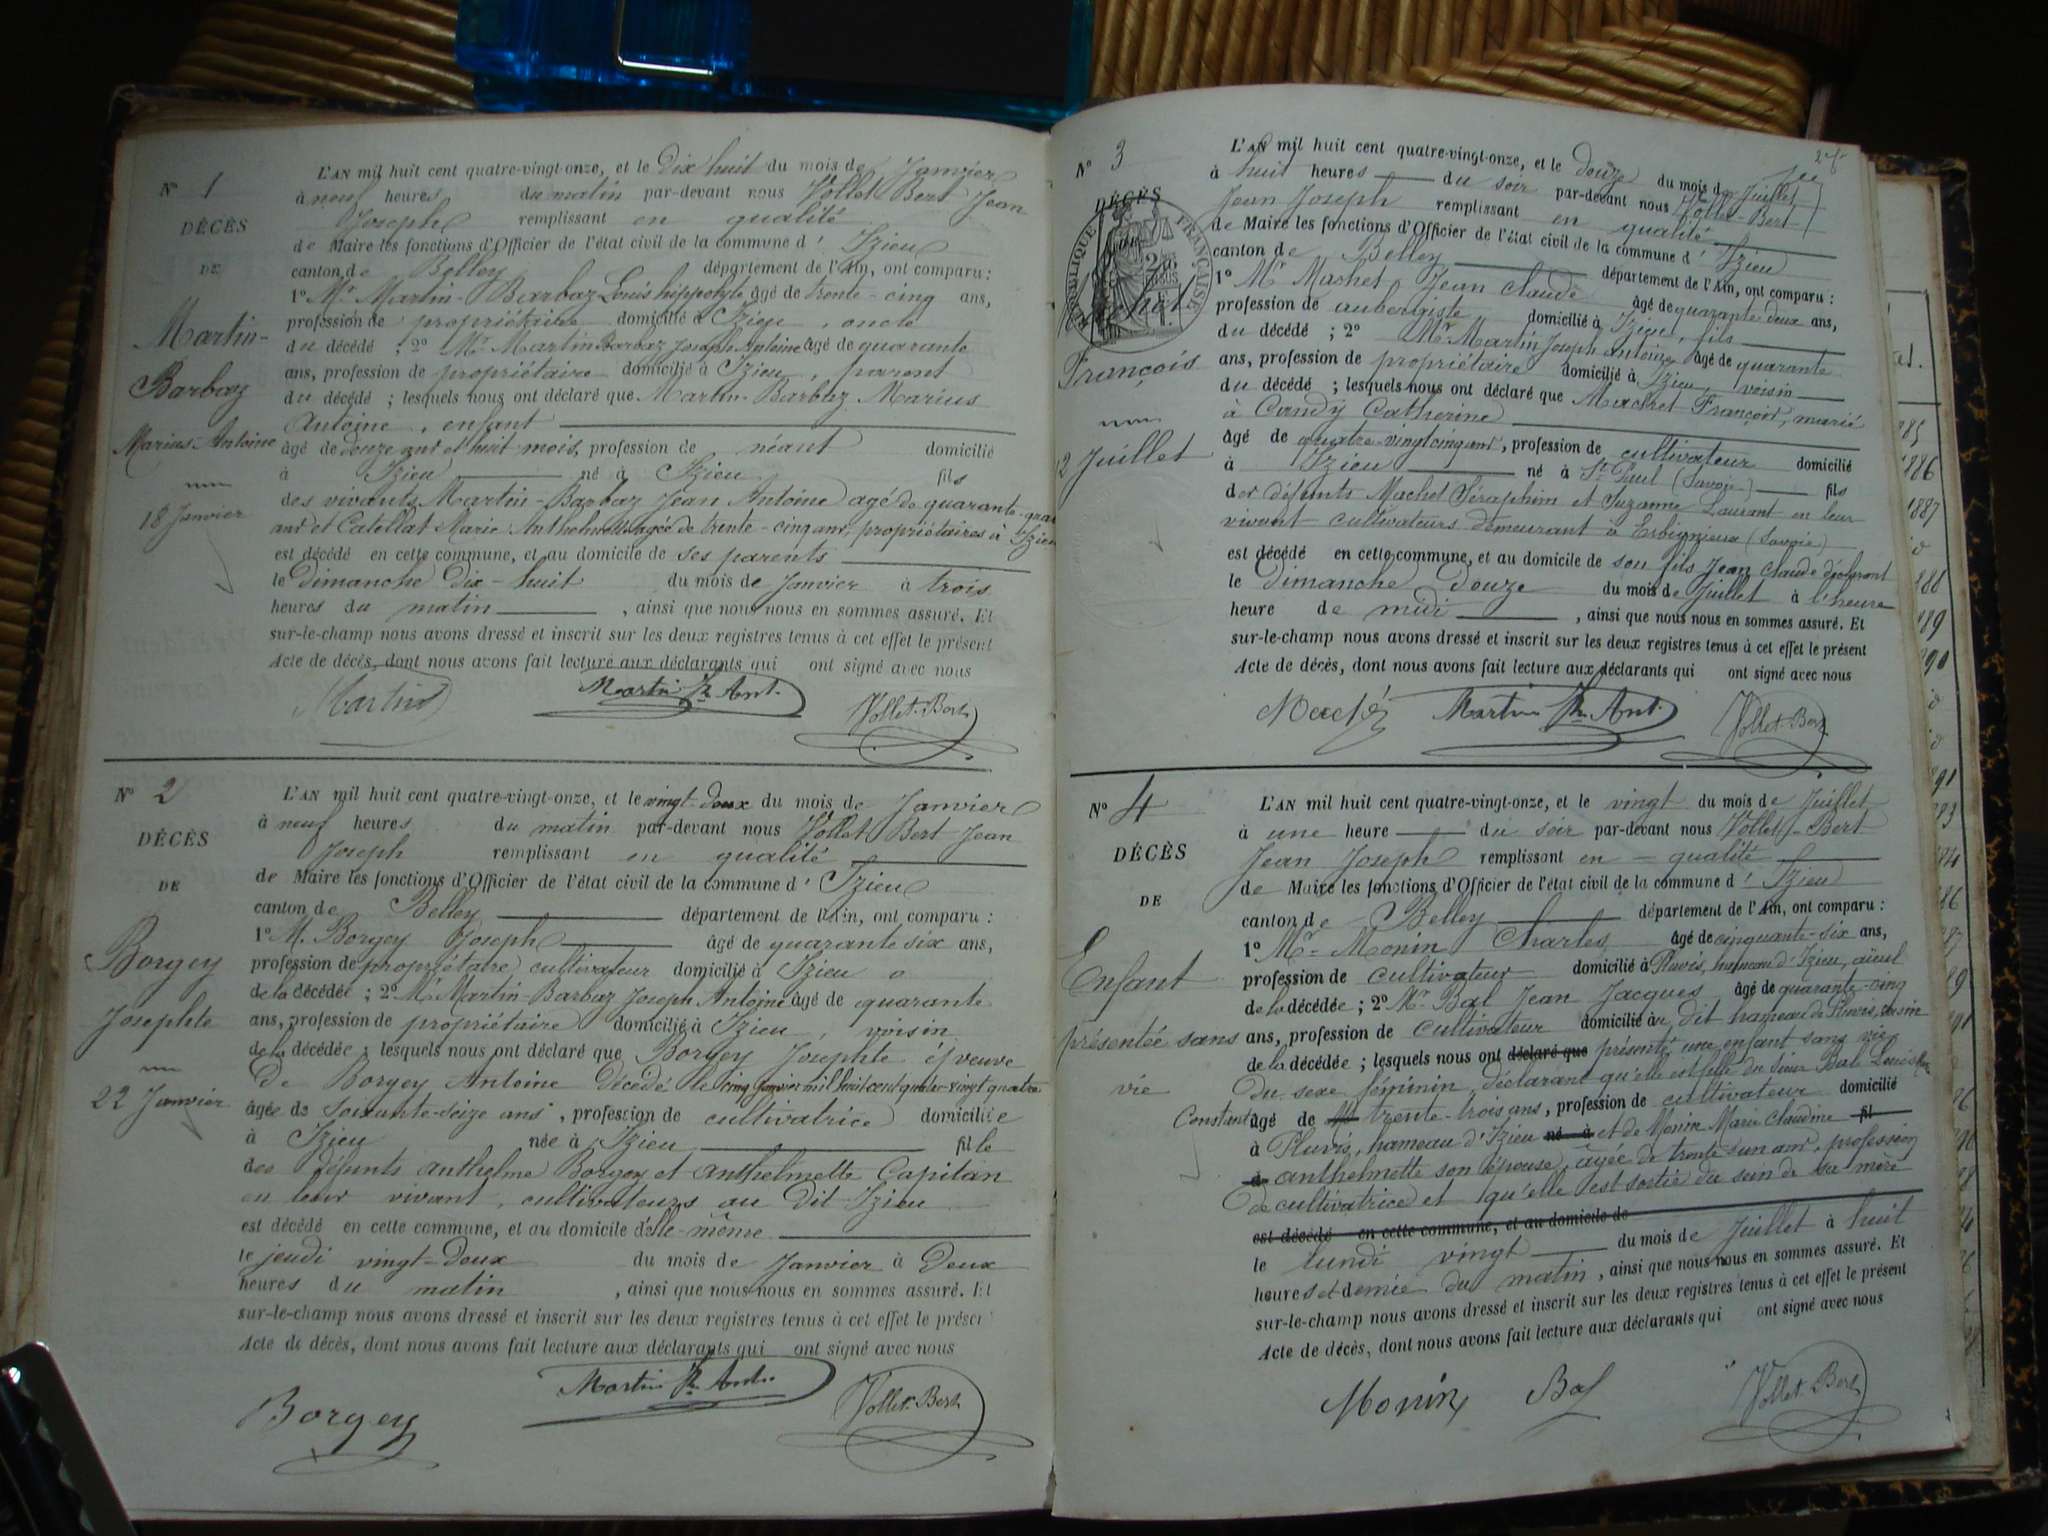 N° 1
DÉCÈS
DE
Martin-
Barbaz
Marius-Antoine
18 Janvier
L'AN mil huit cent quatre-vingt-onze, et le Dix huit du mois de Janvier
à neuf heures du matin par-devant nous Vollet Bert Jean
Joseph remplissant en qualité
de Maire les fonctions d'Officier de l'état civil de la commune d' Izieu
canton de Belley département de l'Ain, ont comparu :
1° Mr Martin-Barbaz Louis hippolyte âgé de trente-cinq ans,
profession de propriétaire domicilié à Izieu, oncle
du décédé ; 2° Mr Martin Barbaz Joseph Antoine âgé de quarante
ans, profession de propriétaire domicilié à Izieu, parent
du décédé ; lesquels nous ont déclaré que Martin-Barbaz Marius
Antoine, enfant
âgé de douze ans et huit mois, profession de néant domicilié
à Izieu né à Izieu fils
des vivants Martin-Barbaz Jean Antoine agé de quarante
ans et Catellat Marie Anthelmette agée de trente-cinq ans, propriétaires à Izieu
est décédé en cette commune, et au domicile de ses parents
le Dimanche Dix-huit du mois de Janvier à trois
heures du matin, ainsi que nous nous en sommes assuré. Et
sur-le-champ nous avons dressé et inscrit sur les deux registres tenus à cet effet le présent
Acte de décès, dont nous avons fait lecture aux déclarants qui ont signé avec nous
Martin Martin Jh Ant. Vollet-Bert
N° 2
DÉCÈS
DE
Borgey
Josephte
22 Janvier
L'AN mil huit cent quatre-vingt-onze, et le vingt-deux du mois de Janvier
à neuf heures du matin par-devant nous Vollet Bert Jean
Joseph remplissant en qualité
de Maire les fonctions d'Officier de l'état civil de la commune d' Izieu
canton de Belley département de l'Ain, ont comparu :
1° M. Borgey Joseph âgé de quarante six ans,
profession de propriétaire cultivateur domicilié à Izieu
de la décédée ; 2° Mr Martin-Barbaz Joseph Antoine âgé de quarante
ans, profession de propriétaire domicilié à Izieu, voisin
de la décédée ; lesquels nous ont déclaré que Borgey Josephte veuve
De Borgey Antoine décédé le cinq janvier mil huit cent quatre-vingt quatre
âgée de soixante-seize ans, profession de cultivatrice domiciliée
à Izieu née à Izieu fille
des défunts anthelme Borgey et anthelmette Capitan
en leur vivant, cultivateurs au Dit Izieu
est décédé en cette commune, et au domicile d'elle-même
le jeudi vingt-Deux du mois de Janvier à Deux
heures du matin, ainsi que nous nous en sommes assuré. Et
sur-le-champ nous avons dressé et inscrit sur les deux registres tenus à cet effet le présen
Acte de décès, dont nous avons fait lecture aux déclarants qui ont signé avec nous
Borgey Martin Jh Ant. Vollet-Bert
N° 3
DÉCÈS
RÉPUBLIQUE FRANÇAISE
François
2 Juillet
L'AN mil huit cent quatre-vingt-onze, et le Douze du mois de Juillet
à huit heures du soir par-devant nous Vollet-Bert
Jean Joseph remplissant en qualité
de Maire les fonctions d'Officier de l'état civil de la commune d' Izieu
canton de Belley département de l'Ain, ont comparu :
1° Mr Machet Jean Claude âgé de quarante deux ans,
profession de aubergiste domicilié à Izieu, fils
du décédé ; 2° Mr Martin Joseph antoine âgé de quarante
ans, profession de propriétaire domicilié à Izieu, voisin
du décédé ; lesquels nous ont déclaré que Machet François, marié
à Candy Catherine
âgé de quatre-vingt cinq ans, profession de cultivateur domicilié
à Izieu né à St Paul (Savoie) fils
des défunts Machet Séraphin et Suzanne Laurant en leur
vivant cultivateurs demeurant à (Savoie)
est décédé en cette commune, et au domicile de son fils Jean Claude déclarant
le Dimanche Douze du mois de Juillet à l'heure
heure de midi, ainsi que nous nous en sommes assuré. Et
sur-le-champ nous avons dressé et inscrit sur les deux registres tenus à cet effet le présent
Acte de décès, dont nous avons fait lecture aux déclarants qui ont signé avec nous
Martin Jh Ant. Vollet-Bert
N° 4
DÉCÈS
DE
Enfant
présentée sans
vie
L'AN mil huit cent quatre-vingt-onze, et le vingt du mois de Juillet
à une heure du soir par-devant nous Vollet-Bert
Jean Joseph remplissant en qualité
de Maire les fonctions d'Officier de l'état civil de la commune d' Izieu
canton de Belley département de l'Ain, ont comparu :
1° Mr Monin Charles âgé de cinquante-six ans,
profession de cultivateur domicilié à Pluvis, hameau d'Izieu, aïeul
de la décédée ; 2° Mr Bal Jean Jacques âgé de quarante-cinq
ans, profession de cultivateur domicilié au dit hameau de Pluvis, voisin
de la décédée ; lesquels nous ont déclaré que présenté une enfant sans vie
Du sexe féminin, déclarant qu'elle est fille du sieur Bal Louis
Constant âgé de trente-trois ans, profession de cultivateur domicilié
à Pluvis, hameau d'Izieu né à et de Monin Marie Claudine fil
à anthelmette son épouse, âgée de trente-un ans, profession
de cultivatrice et qu'elle est sortie du sein de sa mère
est décédé en cette commune, et au domicile de
le lundi vingt du mois de Juillet à huit
heures et demie du matin, ainsi que nous nous en sommes assuré. Et
sur-le-champ nous avons dressé et inscrit sur les deux registres tenus à cet effet le présent
Acte de décès, dont nous avons fait lecture aux déclarants qui ont signé avec nous
Monin Bal Vollet-Bert